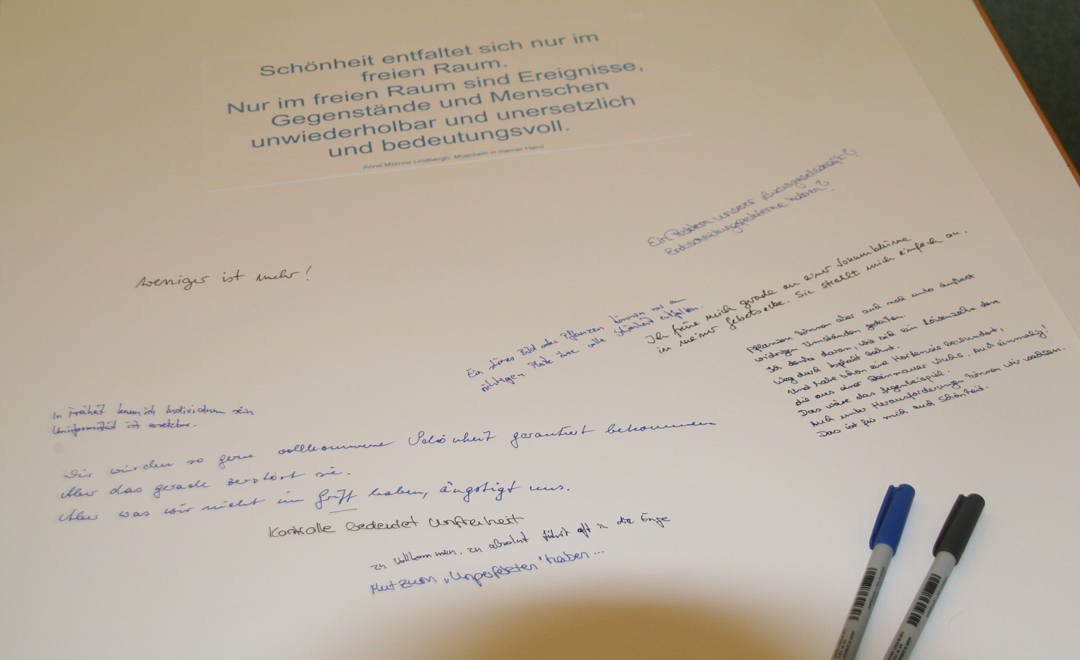 Schönheit entfaltet sich nur im
freien Raum.
Nur im freien Raum sind Ereignisse,
Gegenstände und Menschen
unwiederholbar und unersetzlich
und bedeutungsvoll.
Anne Morrow Lindbergh, Muscheln in meiner Hand
Ein Problem unserer
weniger ist mehr!
Ich freue mich gerade an einer Sonnenblume
in meiner Gebetsecke. Sie strahlt mich einfach an.
Ein schönes Bild das Pflanzen können nur am
richtigen Platz ihre volle Schönheit entfalten.
Pflanzen können aber auch noch unter äußerst
widrigen Umständen gedeihen.
Ich denke daran, wie sich ein Löwenzahn den
Weg durch Asphalt bahnt.
Und habe schon eine Hortensie bewundert,
die aus einer Steinmauer wuchs. Auch einmalig!
Das wäre das Gegenbeispiel.
Auch unter Herausforderungen können wir wachsen.
Das ist für mich auch Schönheit.
In Freiheit kann ich Individuum sein
Uniformität ist ersetzbar.
Wir würden so gerne vollkommene Schönheit garantiert bekommen
Aber das gerade zerstört sie.
Aber was wir nicht im Griff haben, ängstigt uns.
Kontrolle bedeutet Unfreiheit
zu vollkommen, zu absolut führt oft in die Enge
Mut zum "Unperfekten" haben...